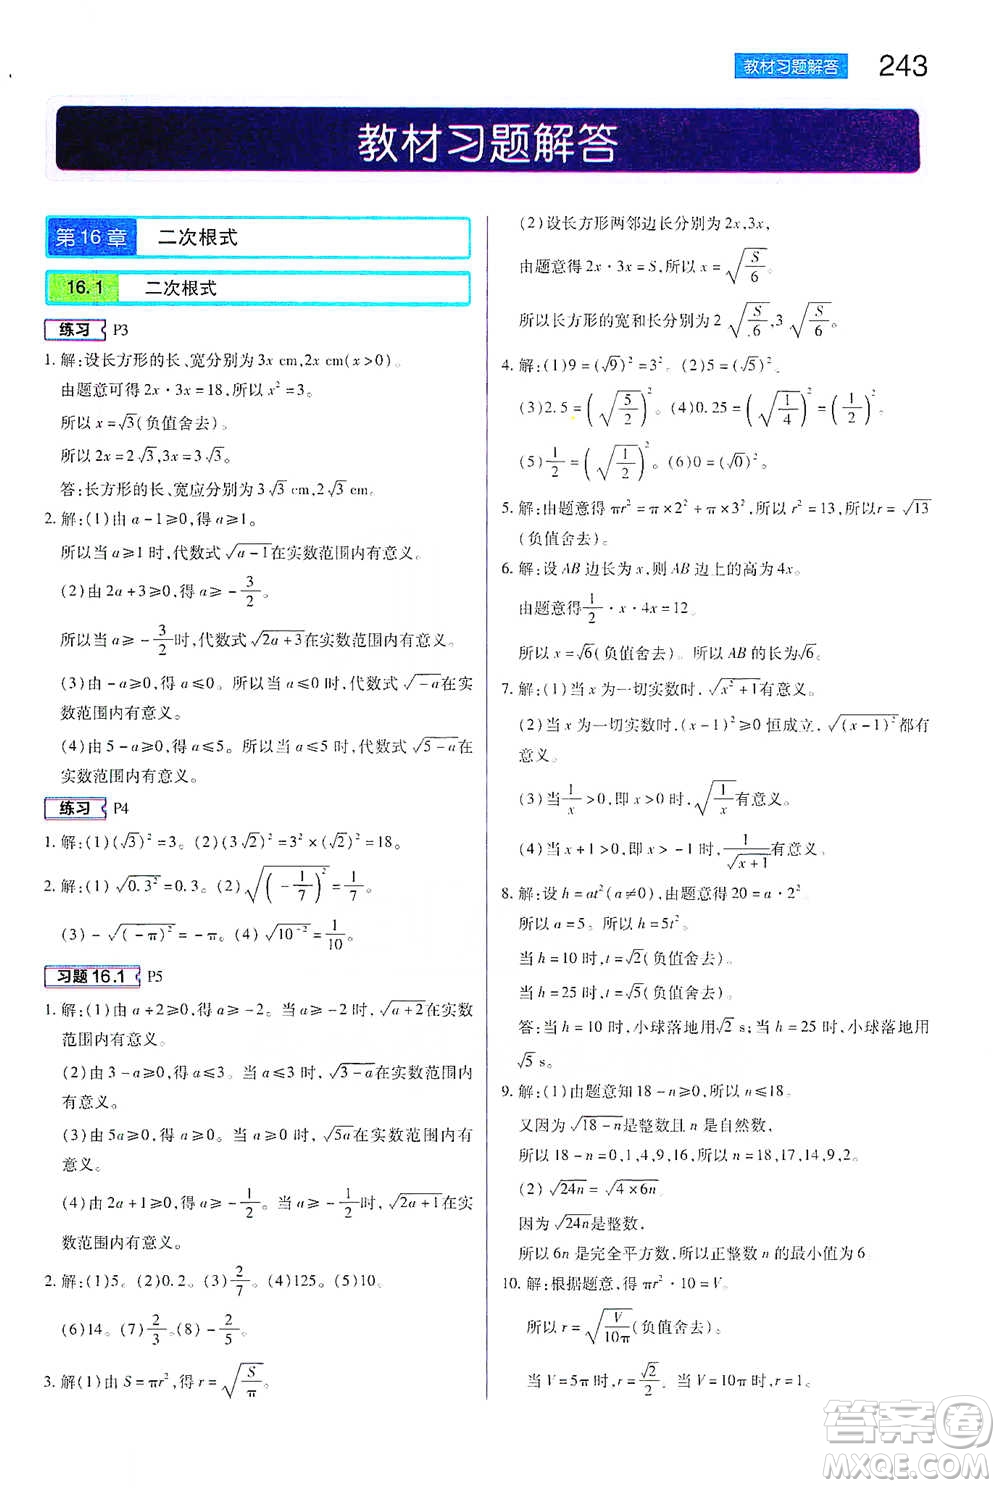 教材习题解答 243
教材习题解答
第16章 二次根式
16.1 二次根式
练习 P3
1. 解:设长方形的长、宽分别为 3x cm,2x cm(x>0)。
由题意可得 2x·3x=18,所以 x²=3。
所以 x=√3(负值舍去)。
所以 2x=2√3,3x=3√3。
答:长方形的长、宽应分别为 3√3 cm,2√3 cm。
2. 解:(1)由 a-1≥0,得 a≥1。
所以当 a≥1 时,代数式√(a-1)在实数范围内有意义。
(2)由 2a+3≥0,得 a≥-3/2。
所以当 a≥-3/2时,代数式√(2a+3)在实数范围内有意义。
(3)由-a≥0,得 a≤0。所以当 a≤0 时,代数式√(-a)在实
数范围内有意义。
(4)由 5-a≥0,得 a≤5。所以当 a≤5 时,代数式√(5-a)在
实数范围内有意义。
练习 P4
1. 解:(1)(√3)²=3。(2)(3√2)²=3²×(√2)²=18。
2. 解:(1)√(0.3²)=0.3。(2)√((-1/7)²)=1/7。
(3)-√((-π)²)=-π。(4)√(10⁻²)=1/10。
习题 16.1 P5
1. 解:(1)由 a+2≥0,得 a≥-2。当 a≥-2 时,√(a+2)在实数
范围内有意义。
(2)由 3-a≥0,得 a≤3。当 a≤3 时,√(3-a)在实数范围内
有意义。
(3)由 5a≥0,得 a≥0。当 a≥0 时,√(5a)在实数范围内有
意义。
(4)由 2a+1≥0,得 a≥-1/2。当 a≥-1/2时,√(2a+1)在实
数范围内有意义。
2. 解:(1)5。(2)0.2。(3)2/7。(4)125。(5)10。
(6)14。(7)2/3。(8)-2/5。
3. 解(1)由 S=πr²,得 r=√(S/π)。
(2)设长方形两邻边长分别为 2x,3x,
由题意得 2x·3x=S,所以 x=√(S/6)。
所以长方形的宽和长分别为 2√(S/6),3√(S/6)。
4. 解:(1)9=(√9)²=3²。(2)5=(√5)²。
(3)2.5=(√(5/2))²。(4)0.25=(√(1/4))²=(1/2)²。
(5)1/2=(√(1/2))²。(6)0=(√0)²。
5. 解:由题意得 πr²=π×2²+π×3²,所以 r²=13,所以r=√13
(负值舍去)。
6. 解:设 AB 边长为 x,则 AB 边上的高为 4x。
由题意得1/2·x·4x=12。
所以 x=√6(负值舍去)。所以 AB 的长为√6。
7. 解:(1)当 x 为一切实数时,√(x²+1)有意义。
(2)当 x 为一切实数时,(x-1)²≥0 恒成立,√((x-1)²)都有
意义。
(3)当1/x>0,即 x>0 时,√(1/x)有意义。
(4)当 x+1>0,即 x>-1 时,1/√(x+1)有意义。
8. 解:设 h=at²(a≠0),由题意得 20=a·2²。
所以 a=5。所以 h=5t²。
当 h=10 时,t=√2(负值舍去)。
当 h=25 时,t=√5(负值舍去)。
答:当 h=10 时,小球落地用√2 s;当 h=25 时,小球落地用
√5 s。
9. 解:(1)由题意知 18-n≥0,所以 n≤18。
又因为√(18-n)是整数且 n 是自然数,
所以 18-n=0,1,4,9,16,所以 n=18,17,14,9,2。
(2)√(24n)=√(4×6n),
因为√(24n)是整数,
所以 6n 是完全平方数,所以正整数 n 的最小值为 6。
10. 解:根据题意,得 πr²·10=V。
所以 r=√(V/10π)(负值舍去)。
当 V=5π时,r=√2/2。当 V=10π时,r=1。
答案卷
MXQE.COM